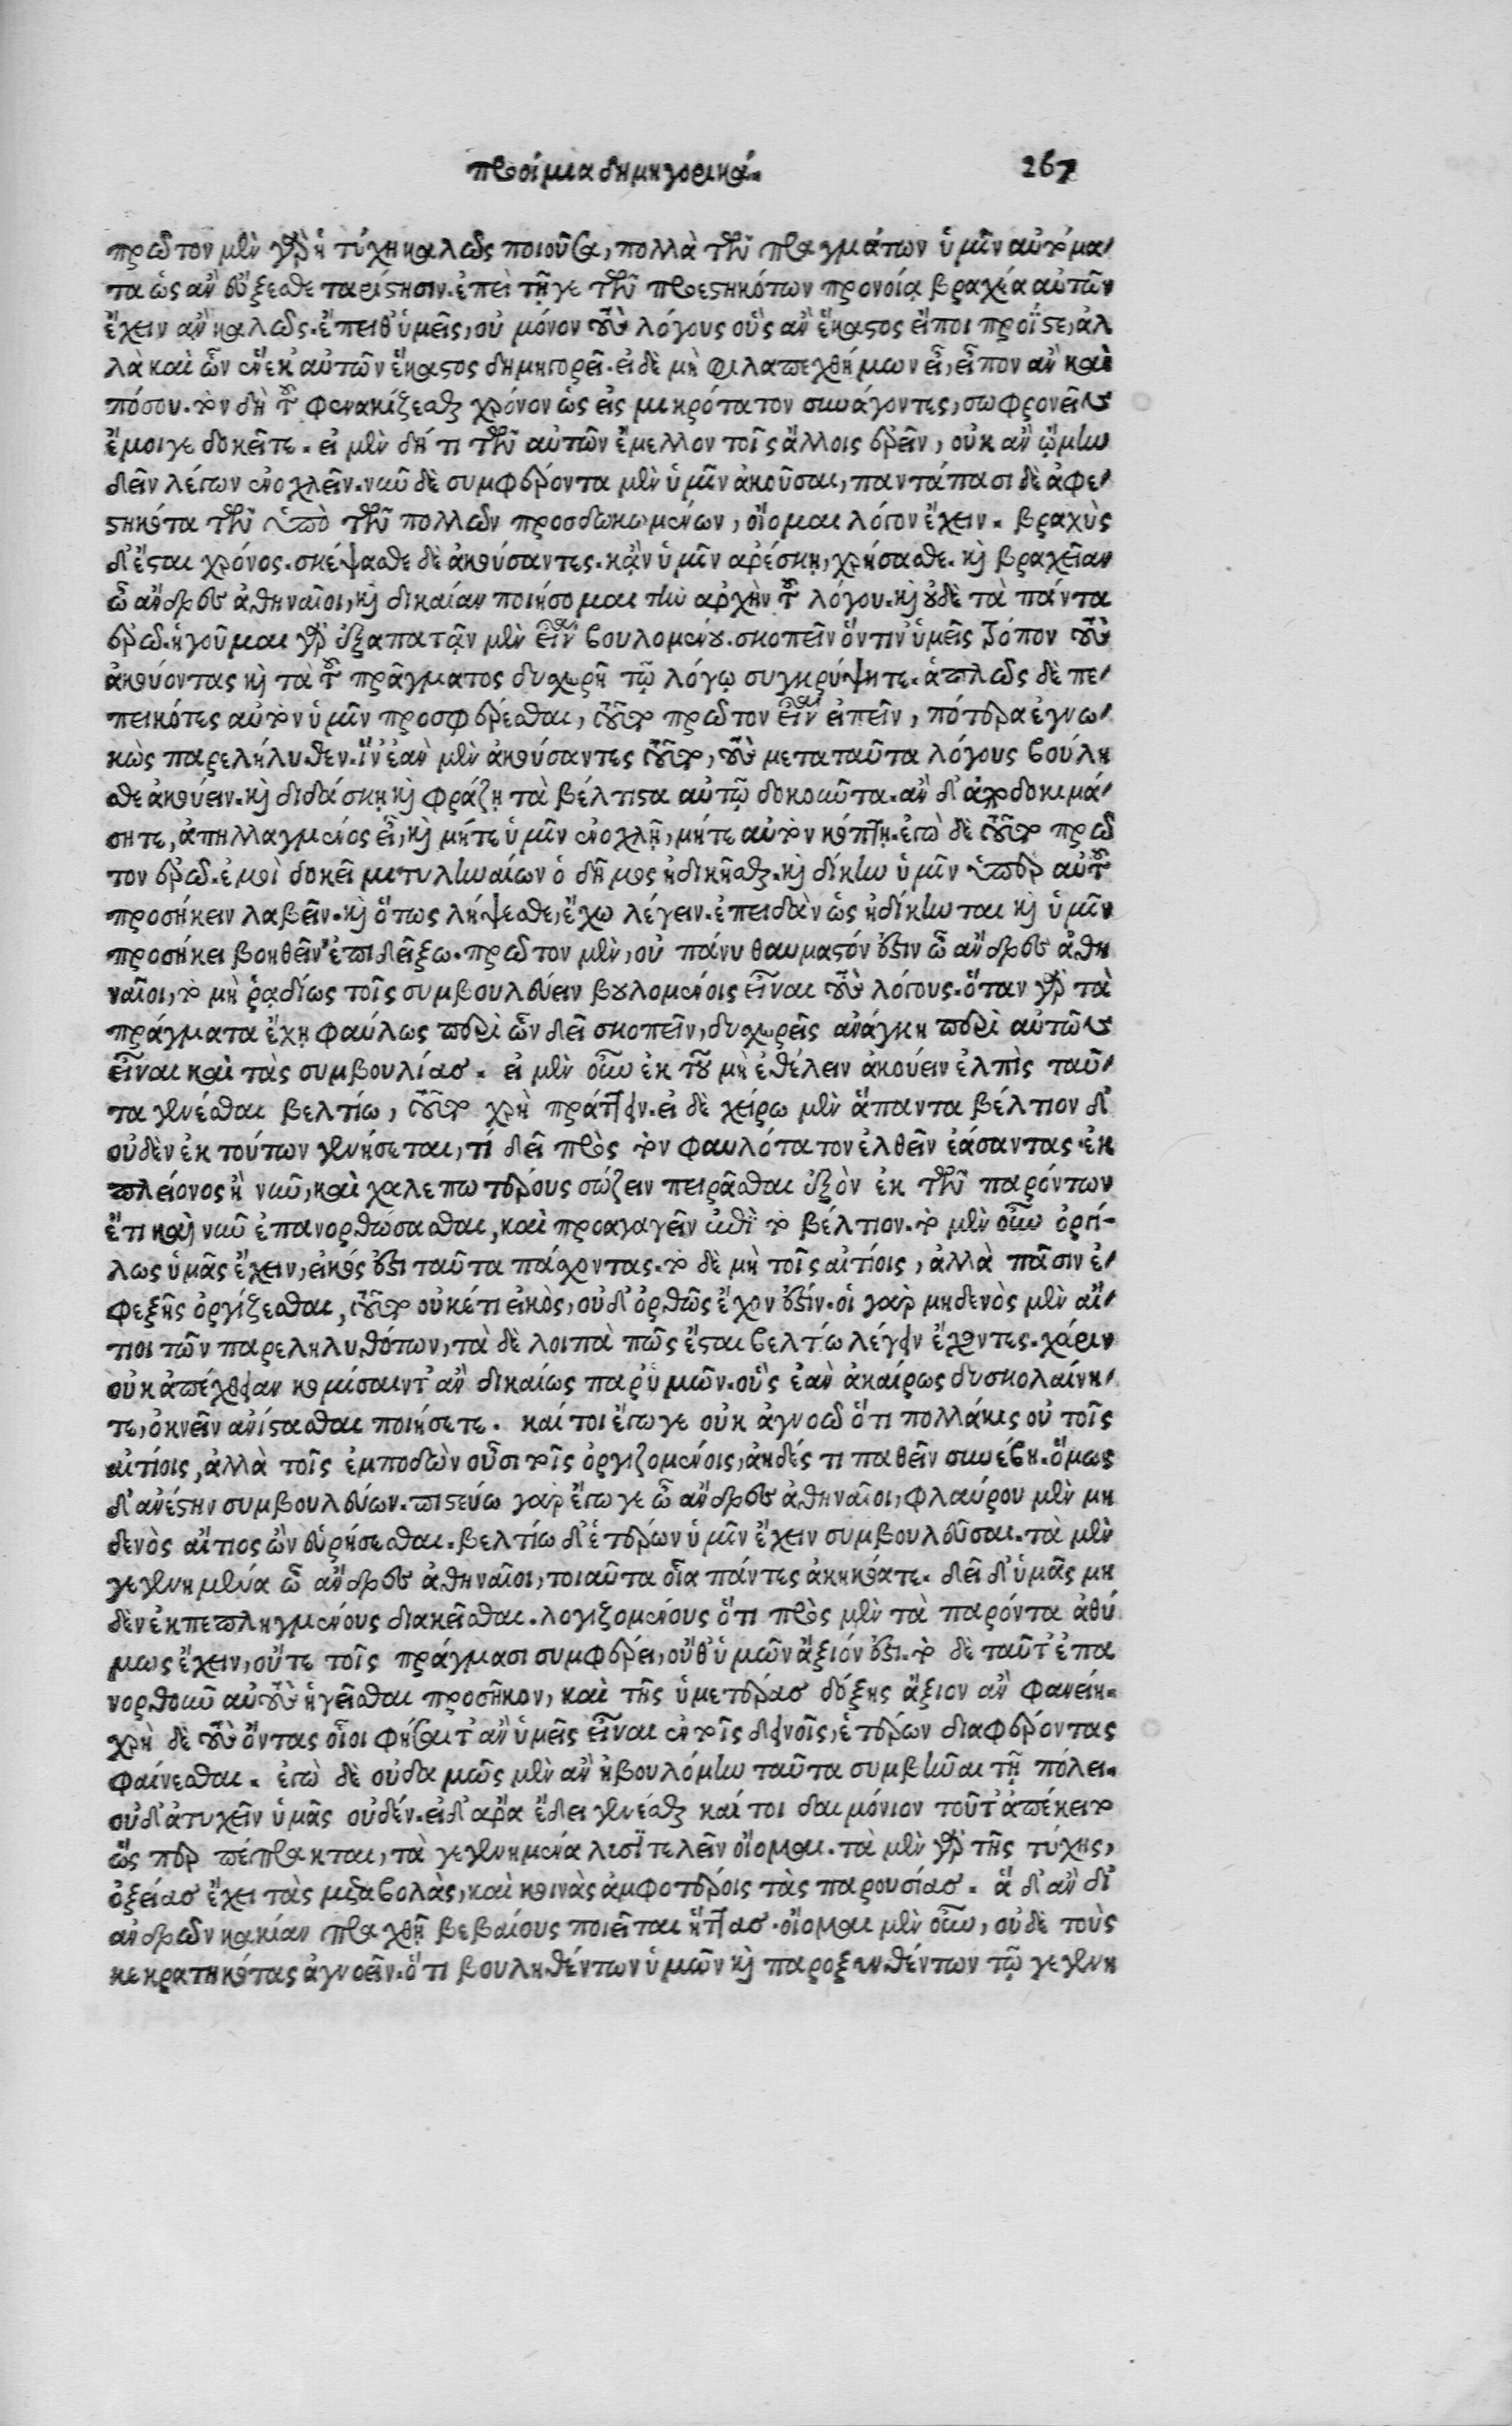 προοίμια δημηγορικά. 267
πρῶτον μὲν γὰρ ἡ τύχη καλῶς ποιοῦσα, πολλὰ τῶν πραγμάτων ὑμῖν αὐτόμα-
τα ὡς ἂν εὔξεσθε παρίστησιν. ἐπεὶ τῇ γε τῶν προεστηκότων προνοίᾳ βραχέα αὐτῶν
ἔχειν ἂν καλῶς. ἔπειθ' ὑμεῖς, οὐ μόνον τοὺς λόγους οὓς ἂν ἕκαστος εἴποι πρόϊστε, ἀλ
λὰ καὶ ὧν ἕνεκ' αὐτῶν ἕκαστος δημηγορεῖ. εἰ δὲ μὴ φιλαπεχθήμων εἶ, εἶπον ἂν καὶ
πόσου. τὸν δὴ τοῦ φενακίζεσθαι χρόνον ὡς εἰς μικρότατον συνάγοντες, σωφρονεῖν
ἔμοιγε δοκεῖτε. εἰ μὲν δή τι τῶν αὐτῶν ἔμελλον τοῖς ἄλλοις ἐρεῖν, οὐκ ἂν ᾤμην
δεῖν λέγων ἐνοχλεῖν. νῦν δὲ συμφέροντα μὲν ὑμῖν ἀκοῦσαι, παντάπασι δὲ ἀφε-
στηκότα τῶν ὑπὸ τῶν πολλῶν προσδωκωμένων, οἴομαι λόγον ἔχειν. βραχὺς
δ' ἔσται χρόνος. σκέψασθε δὲ ἀκούσαντες. κἂν ὑμῖν ἀρέσκῃ, χρήσασθε. καὶ βραχεῖαν
ὦ ἄνδρες ἀθηναῖοι, καὶ δικαίαν ποιήσομαι τὴν ἀρχὴν τοῦ λόγου. καὶ οὐδὲ τὰ πάντα
ἐρῶ. ἡγοῦμαι γὰρ ἐξαπατᾷν μὲν εἶναι βουλομένου. σκοπεῖν ὅντιν' ὑμεῖς τρόπον τοὺς
ἀκούοντας καὶ τὰ τοῦ πράγματος δυσχερῆ τῷ λόγῳ συγκρύψητε. ἁπλῶς δὲ πε-
πεικότες αὐτὸν ὑμῖν προσφέρεσθαι, τοῦτο πρῶτον εἶναι εἰπεῖν, πότερα ἐγνω-
κὼς παρελήλυθεν. ἵν' ἐὰν μὲν ἀκούσαντες τοῦτο, τοὺς μετα ταῦτα λόγους βούλη
σθε ἀκούειν. καὶ διδάσκῃ καὶ φράζῃ τὰ βέλτιστα αὐτῷ δοκοῦντα. ἂν δ' ἀποδοκιμά-
σητε, ἀπηλλαγμένος εἶ, καὶ μήτε ὑμῖν ἐνοχλῇ, μήτε αὐτὸν κόπτῃ. ἐγὼ δὲ τοῦτο πρῶ
τον ἐρῶ. ἐμοὶ δοκεῖ μιτυληναίων ὁ δῆμος ἠδικῆσθαι. καὶ δίκην ὑμῖν ὑπὲρ αὐτοῦ
προσήκειν λαβεῖν. καὶ ὅπως λήψεσθε, ἔχω λέγειν. ἐπειδὰν ὡς ἠδίκηται καὶ ὑμῖν
προσήκει βοηθεῖν ἐπιδείξω. πρῶτον μὲν, οὐ πάνυ θαυμαστόν ἐστιν ὦ ἄνδρες ἀθη
ναῖοι, τὸ μὴ ῥᾳδίως τοῖς συμβουλεύειν βουλομένοις εἶναι τοὺς λόγους. ὅταν γὰρ τὰ
πράγματα ἔχῃ φαύλως περὶ ὧν δεῖ σκοπεῖν, δυσχερεῖς ἀνάγκη περὶ αὐτῶν
εἶναι καὶ τὰς συμβουλίας. εἰ μὲν οὖν ἐκ τοῦ μὴ ἐθέλειν ἀκούειν ἐλπὶς ταῦ-
τα γενέσθαι βελτίω, τοῦτο χρὴ πράττειν. εἰ δὲ χείρω μὲν ἅπαντα βέλτιον δ'
οὐδὲν ἐκ τούτων γενήσεται, τί δεῖ πρὸς τὸν φαυλότατον ἐλθεῖν ἐάσαντας. ἐκ
πλείονος ἢ νῦν, καὶ χαλεπωτέρους σώζειν πειρᾶσθαι ἐξὸν ἐκ τῶν παρόντων
ἔτι καὶ νῦν ἐπανορθώσασθαι, καὶ προαγαγεῖν ἐπὶ τὸ βέλτιον. τὸ μὲν οὖν ὀργί-
λως ὑμᾶς ἔχειν, εἰκός ἐστι ταῦτα πάσχοντας. τὸ δὲ μὴ τοῖς αἰτίοις, ἀλλὰ πᾶσιν ἐ-
φεξῆς ὀργίζεσθαι, τοῦτο οὐκέτι εἰκὸς, οὐδ' ὀρθῶς ἔχον ἐστίν. οἱ γὰρ μηδενὸς μὲν αἴ-
τιοι τῶν παρεληλυθότων, τὰ δὲ λοιπὰ πῶς ἔσται βελτίω λέγειν ἔχοντες. χάριν
οὐκ ἀπέχθειαν κομίσαιντ' ἂν δικαίως παρ' ὑμῶν. οὓς ἐὰν ἀκαίρως δυσκολαίνη-
τε, ὀκνεῖν ἀνίστασθαι ποιήσετε. καί τοι ἔγωγε οὐκ ἀγνοῶ ὅτι πολλάκις οὐ τοῖς
αἰτίοις, ἀλλὰ τοῖς ἐμποδὼν οὖσι τοῖς ὀργιζομένοις, ἀηδές τι παθεῖν συνέβη. ὅμως
δ' ἀνέστην συμβουλεύων. πιστεύω γὰρ ἔγωγε ὦ ἄνδρες ἀθηναῖοι, φλαύρου μὲν μη
δενὸς αἴτιος ὢν εὑρήσεσθαι. βελτίω δ' ἑτέρων ὑμῖν ἔχειν συμβουλεῦσαι. τὰ μὲν
γεγενημένα ὦ ἄνδρες ἀθηναῖοι, τοιαῦτα οἷα πάντες ἀκηκόατε. δεῖ δ' ὑμᾶς μη
δὲν ἐκπεπληγμένους διακεῖσθαι. λογιζομένους ὅτι πρὸς μὲν τὰ παρόντα ἀθύ
μως ἔχειν, οὔτε τοῖς πράγμασι συμφέρει, οὔθ' ὑμῶν ἄξιόν ἐστι. τὸ δὲ ταῦτ' ἐπα
νορθοῦν αὐτοὺς ἡγεῖσθαι προσῆκον, καὶ τῆς ὑμετέρας δόξης ἄξιον ἂν φανείη.
χρὴ δὲ τοὺς ὄντας οἷοι φήσαιτ' ἂν ὑμεῖς εἶναι ἐν τοῖς δεινοῖς, ἑτέρων διαφέροντας
φαίνεσθαι. ἐγὼ δὲ οὐδαμῶς μὲν ἂν ἠβουλόμην ταῦτα συμβῆναι τῇ πόλει.
οὐδ' ἀτυχεῖν ὑμᾶς οὐδέν. εἰ δ' ἄρα ἔδει γενέσθαι καί τοι δαιμόνιον τοῦτ' ἀπέκειτο
ὥς περ πέπρακται, τὰ γεγενημένα λυσϊτελεῖν οἴομαι. τὰ μὲν γὰρ τῆς τύχης,
ὀξείας ἔχει τὰς μεταβολὰς, καὶ κοινὰς ἀμφοτέροις τὰς παρουσίας. ἃ δ' ἂν δι'
ἀνδρῶν κακίαν πραχθῇ βεβαίους ποιεῖται ἥττας. οἴομαι μὲν οὖν, οὐδὲ τοὺς
κεκρατηκότας ἀγνοεῖν. ὅτι βουληθέντων ὑμῶν καὶ παροξυνθέντων τῷ γεγενη